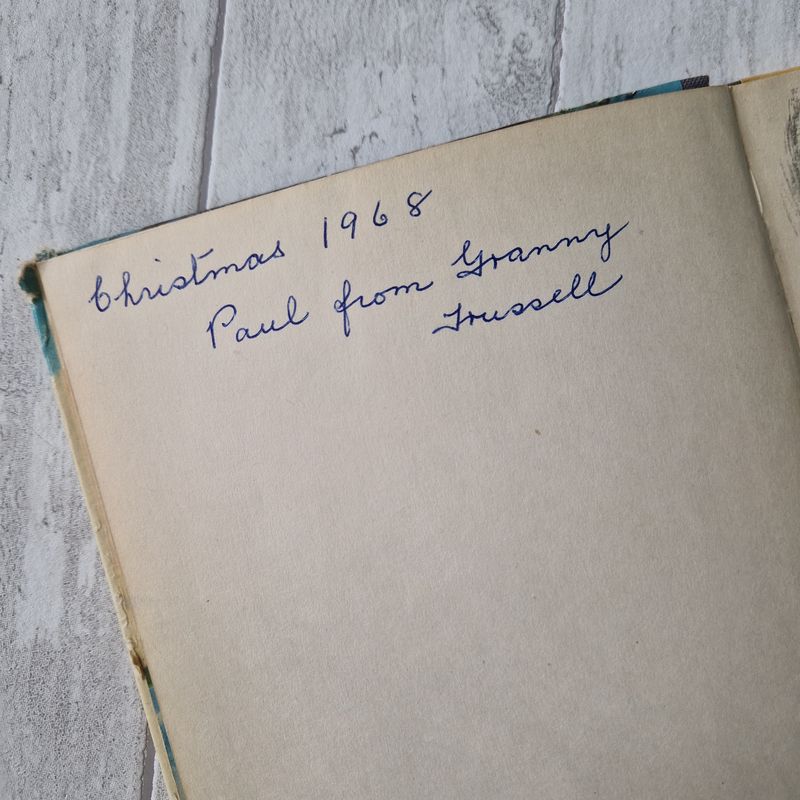 Christmas 1968
Paul from Granny
Trussell